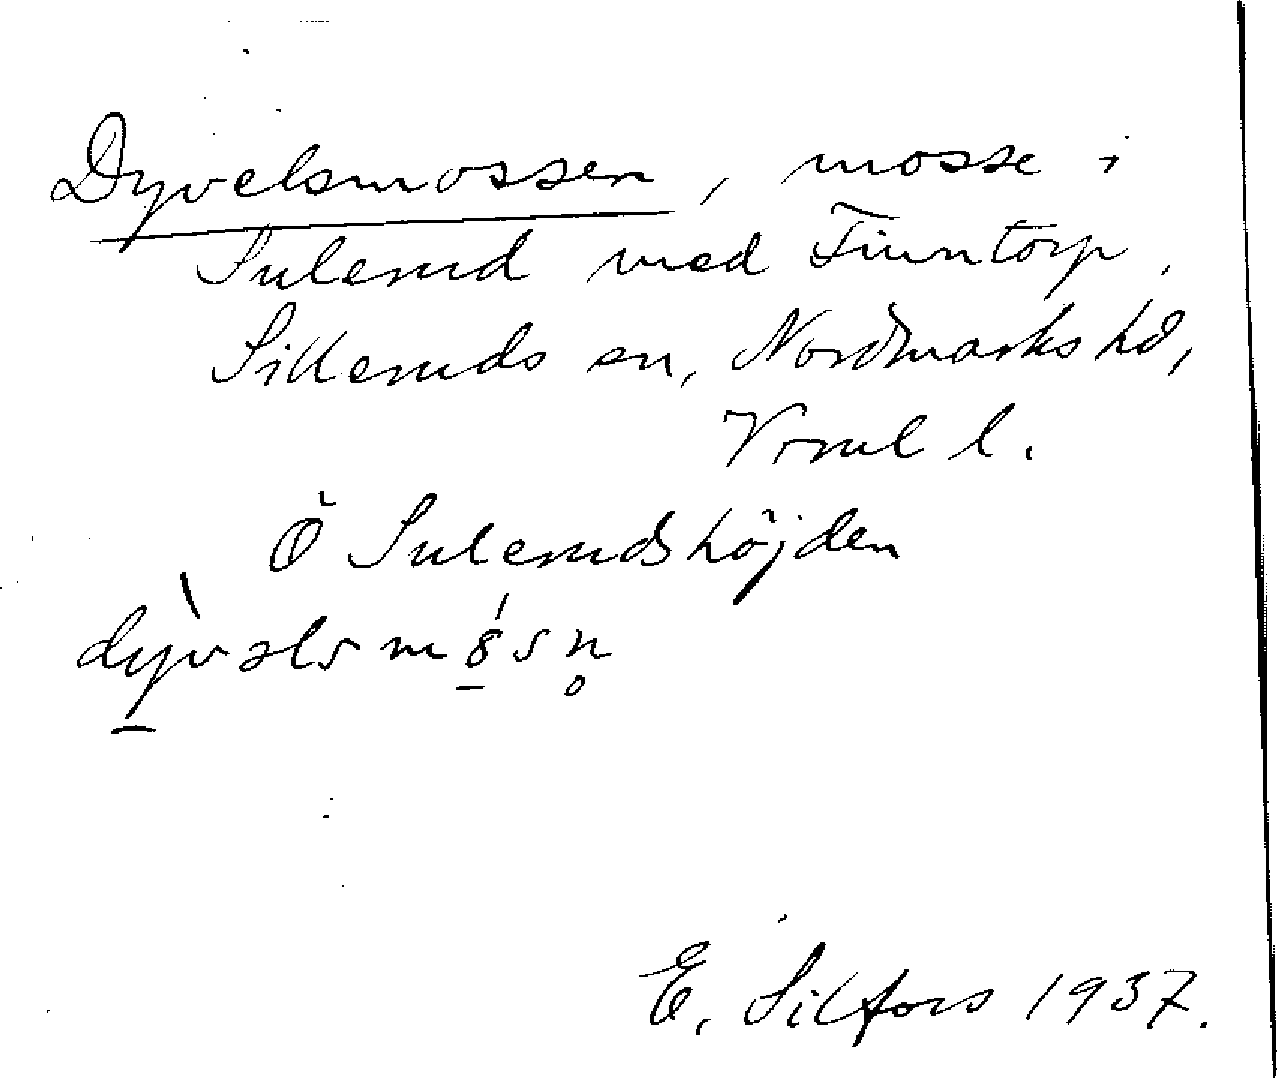 Dyvelsmossen, mosse i
Sulerud med Finntorp,
Silleruds sn, Nordmarks hd,
Vrml l.
Ö Sulerudshöjden
dỳ̠vəlsmȣ̠́sn̥
E. Silfors 1937.